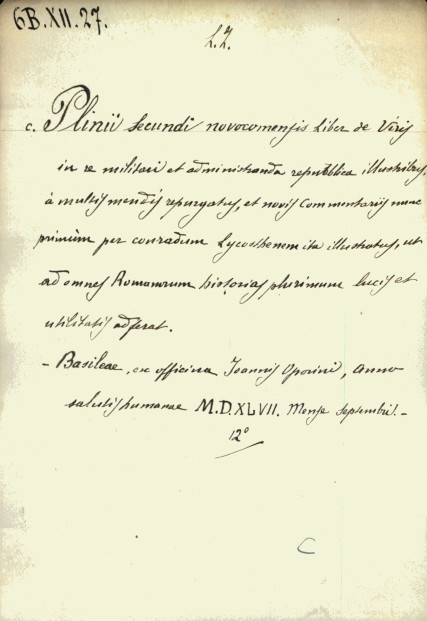 6B.XII.27.
L.L.
c. Plinii secundi novocomensis Liber de Viris
in re militari et administranda republica illustribus,
à multis mendis repurgatus, et novis Commentariis nunc
primùm per conradum Lycosthenem ita illustratus, ut
ad omnes Romanorum historias plurimum lucis et
utilitatis adferat.
- Basileae, ex officina Joannis Oporini, anno
salutis humanae M.D.XLVII. Mense septembri. -
12°
C